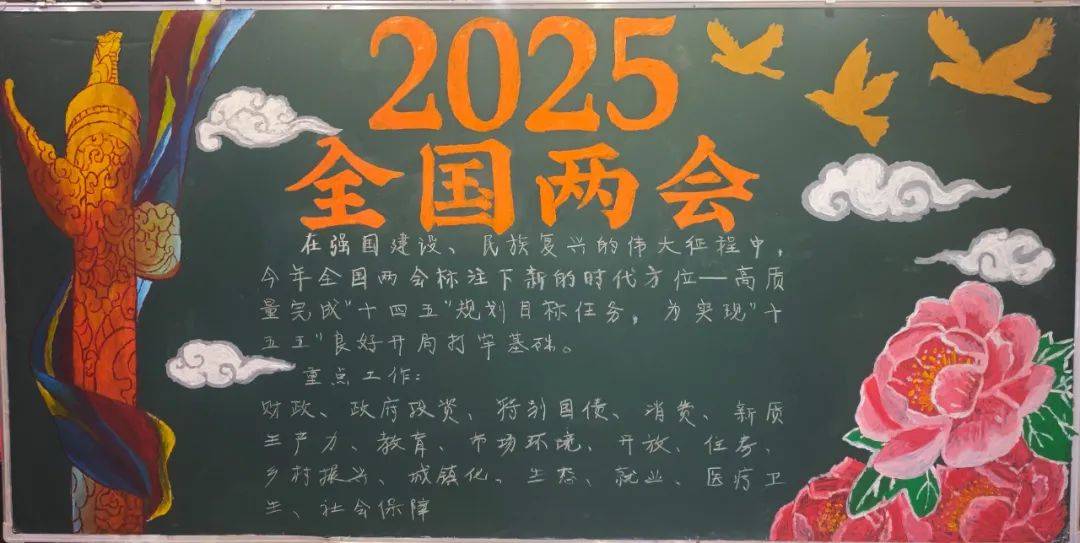 2025
全国两会
在强国建设、民族复兴的伟大征程中，
今年全国两会标注下新的时代方位—高质
量完成"十四五"规划目标任务，为实现"十
五五"良好开局打牢基础。
重点工作：
财政、政府投资、特别国债、消费、新质
生产力、教育、市场环境、开放、住房、
乡村振兴、城镇化、生态、就业、医疗卫
生、社会保障